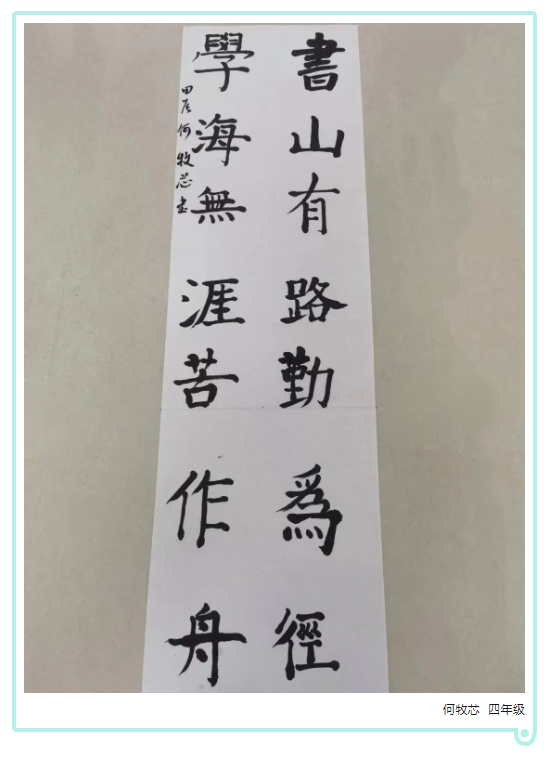 書山有路勤為徑
學海無涯苦作舟
甲辰何牧芯書
何牧芯 四年级